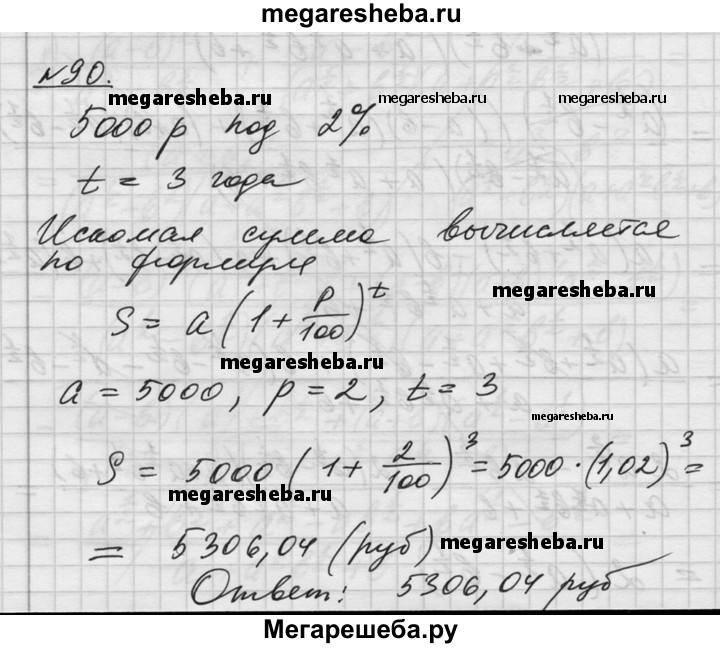 megaresheba.ru
№90.
megaresheba.ru megaresheba.ru megaresheba.ru
5000 р под 2%
t = 3 года
Искомая сумма вычисляется
по формуле
megaresheba.ru
S = a(1 + p/100)^t
megaresheba.ru
a = 5000, p = 2, t = 3
megaresheba.ru
S = 5000(1 + 2/100)^3 = 5000·(1,02)^3 =
megaresheba.ru
= 5306,04 (руб)
megaresheba.ru
Ответ: 5306,04 руб
Мегарешеба.ру